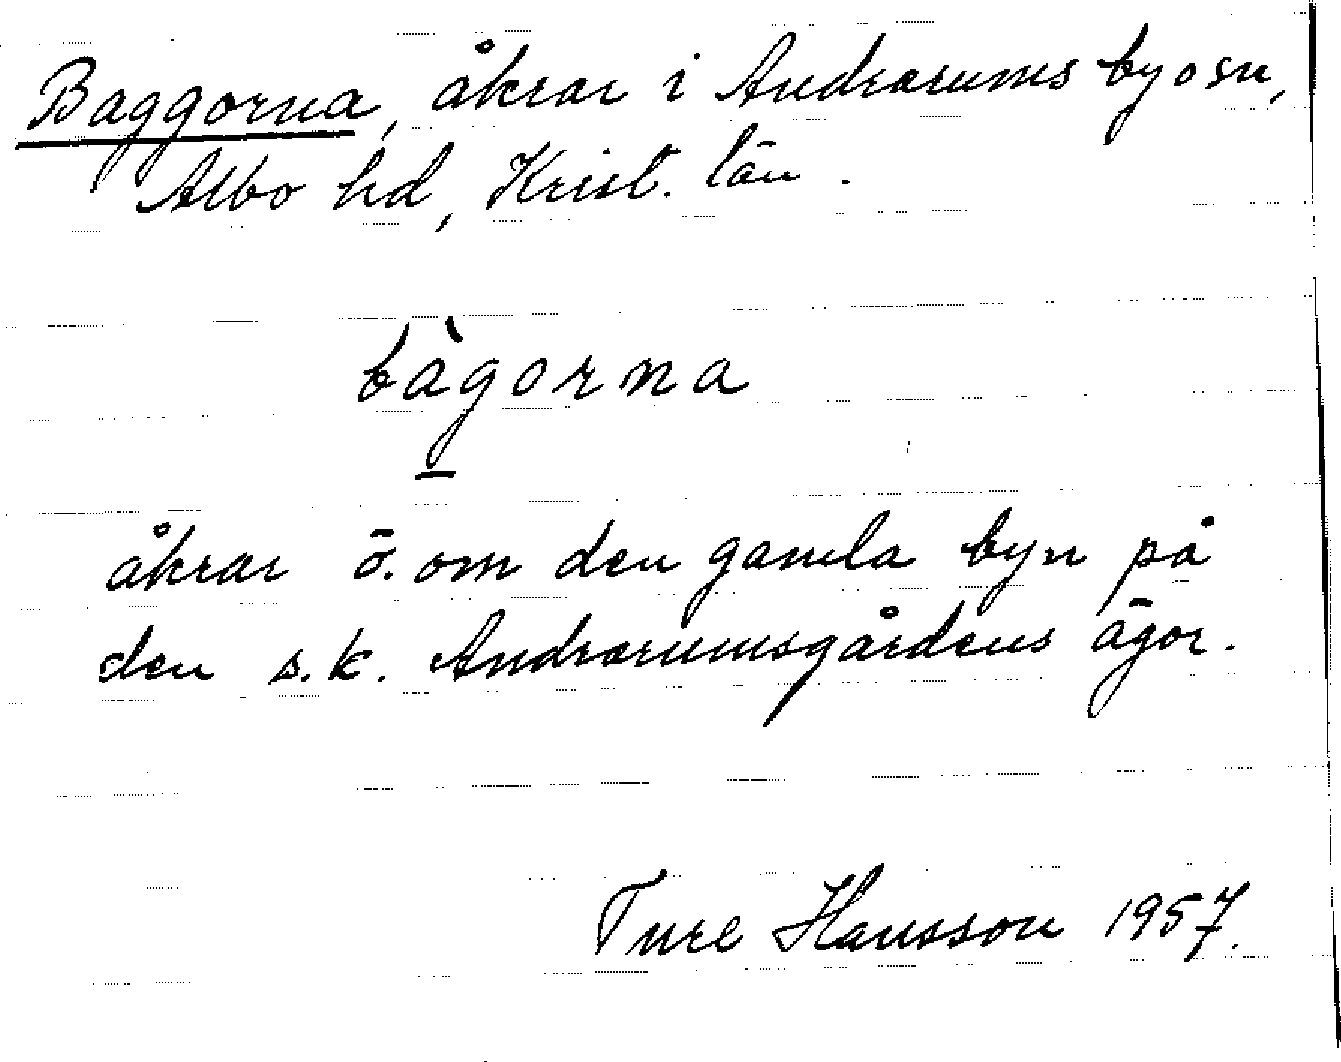 Baggorna, åkrar i Andrarums by o sn,
Albo hd, Krist. län.
bàg̱orna
åkrar ö. om den gamla byn på
den s.k. Andrarumsgårdens ägor.
Ture Hansson 1957.